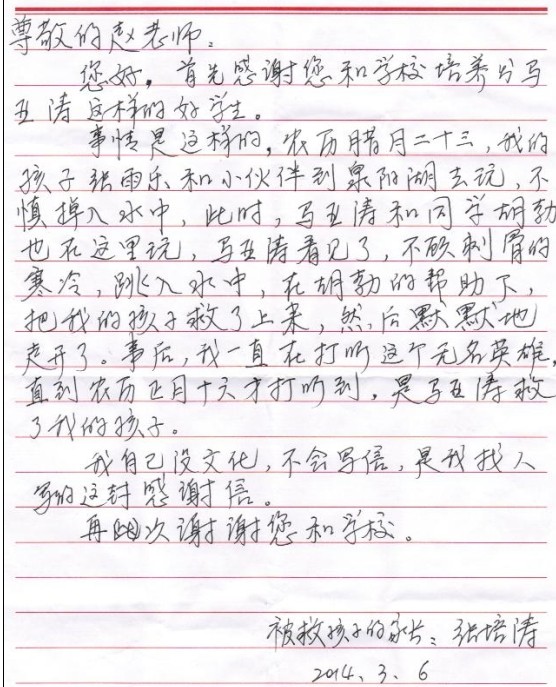 尊敬的赵老师:
您好，首先感谢您和学校培养出马
亚涛这样的好学生。
事情是这样的，农历腊月二十三，我的
孩子张雨乐和小伙伴到泉阳湖去玩，不
慎掉入水中，此时，马亚涛和同学胡勃
也在这里玩，马亚涛看见了，不顾刺骨的
寒冷，跳入水中，在胡勃的帮助下，
把我的孩子救了上来，然后默默地
走开了。事后，我一直在打听这个无名英雄，
直到农历正月十六才打听到，是马亚涛救
了我的孩子。
我自己没文化，不会写信，是我找人
写的这封感谢信。
再次谢谢您和学校。
被救孩子的家长：张培涛
2014.3.6